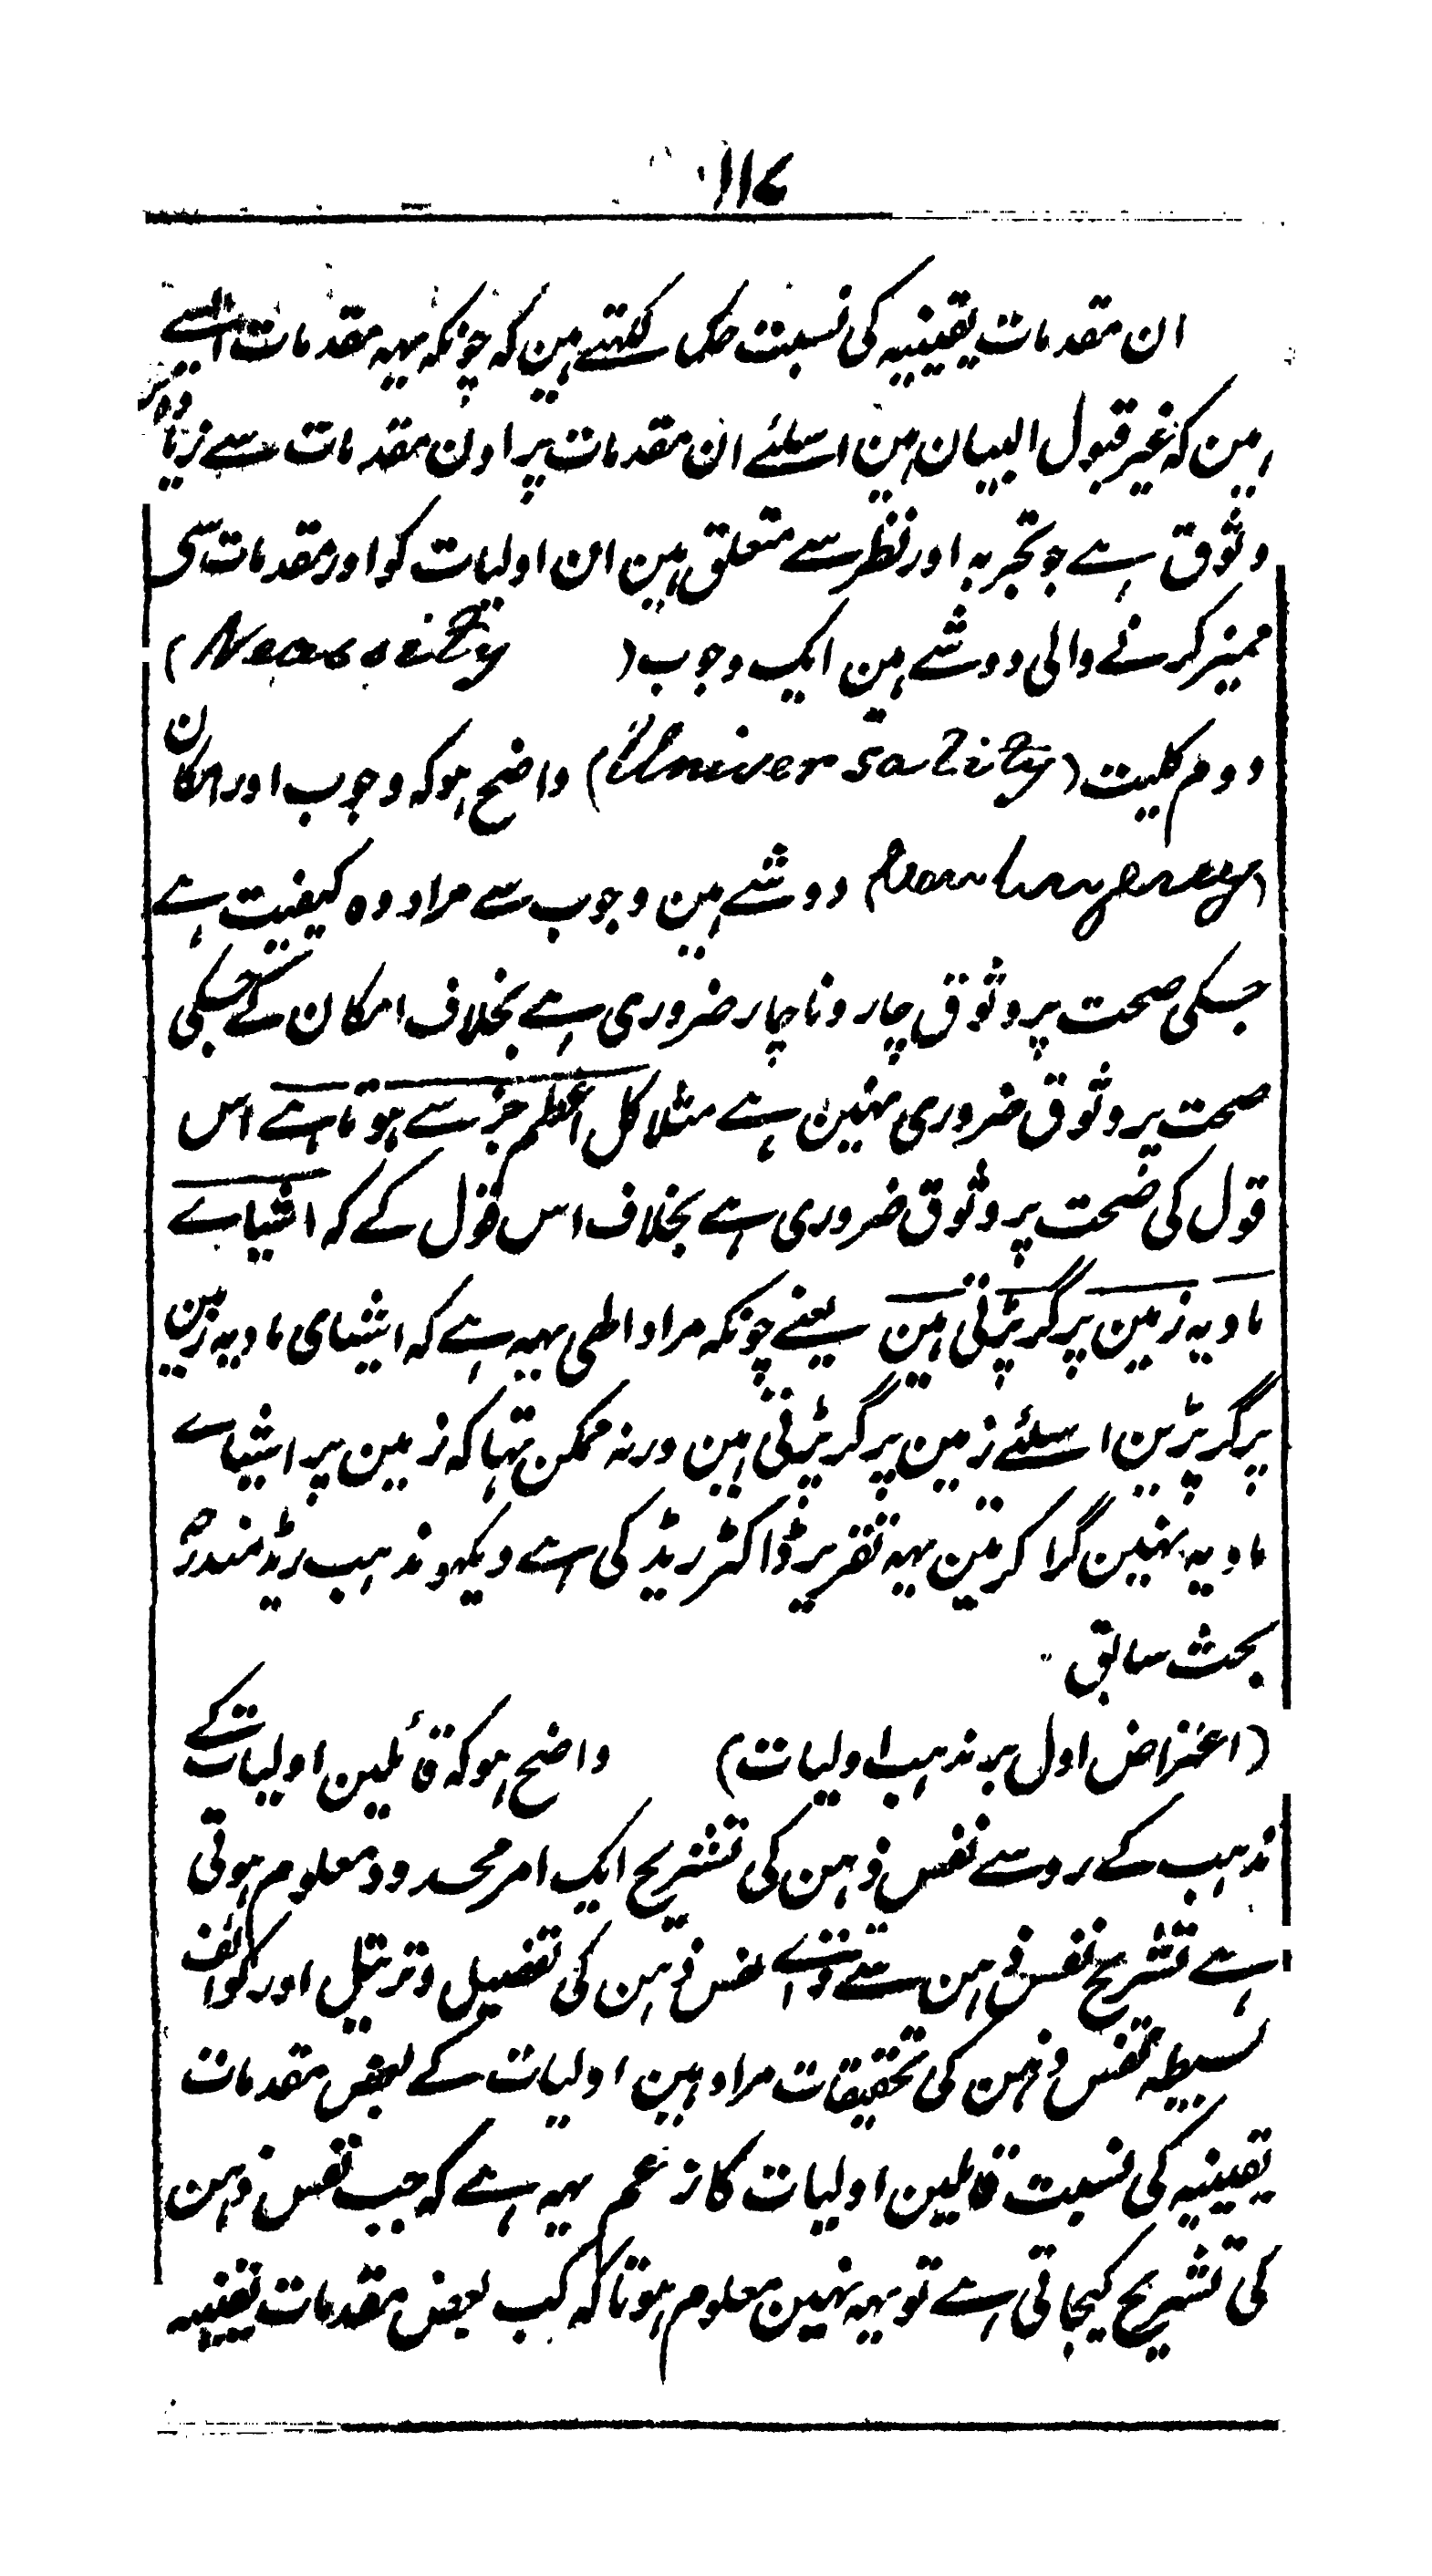 ۱۱۷
ان مقدمات یقینیہ کی نسبت حکما کہتے ہین کہ چونکہ یہہ مقدمات ایسے
ہین کہ غیر قبول البیان ہین اسلئے ان مقدمات پر اون مقدمات سے زیادہ تر
وثوق ہے جو تجربہ اور نظر سے متعلق ہین ان اولیات کو اور مقدمات سی
ممیز کرنے والی دو شے ہین ایک وجوب (Necessity)
دوم کلیت (Universality) واضح ہو کہ وجوب اور امکان
(Contingency) دو شے ہین وجوب سے مراد وہ کیفیت ہے
جسکی صحت پر وثوق چار و ناچار ضروری ہے بخلاف امکان کے جسکی
صحت پر وثوق ضروری نہین ہے مثلا کل اعظم جز سے ہوتا ہے اس
قول کی صحت پر وثوق ضروری ہے بخلاف اس قول کے کہ اشیاے
مادیہ زمین پر گر پڑتی ہین یعنے چونکہ مراد الہی یہہ ہے کہ اشیای مادیہ زمین
پر گر پڑین اسلئے زمین پر گر پڑتی ہین ورنہ ممکن تہا کہ زمین پر اشیاے
مادیہ نہین گرا کرتین یہہ تقریر ڈاکٹر ریڈ کی ہے دیکہو مذہب ریڈ مندرجہ
بحث سابق
(اعتراض اول بر مذہب اولیات) واضح ہو کہ قائلین اولیات کے
مذہب کے رو سے نفس ذہن کی تشریح ایک امر محدود معلوم ہوتی
ہے تشریح نفس ذہن سے قواے نفس ذہن کی تفصیل و ترتیل اور کوائف
بسیطہ نفس ذہن کی تحقیقات مراد ہین اولیات کے بعض مقدمات
یقینیہ کی نسبت قایلین اولیات کا زعم یہہ ہے کہ جب نفس ذہن
کی تشریح کیجاتی ہے تو یہہ نہین معلوم ہوتا کہ کب بعض مقدمات یقینیہ